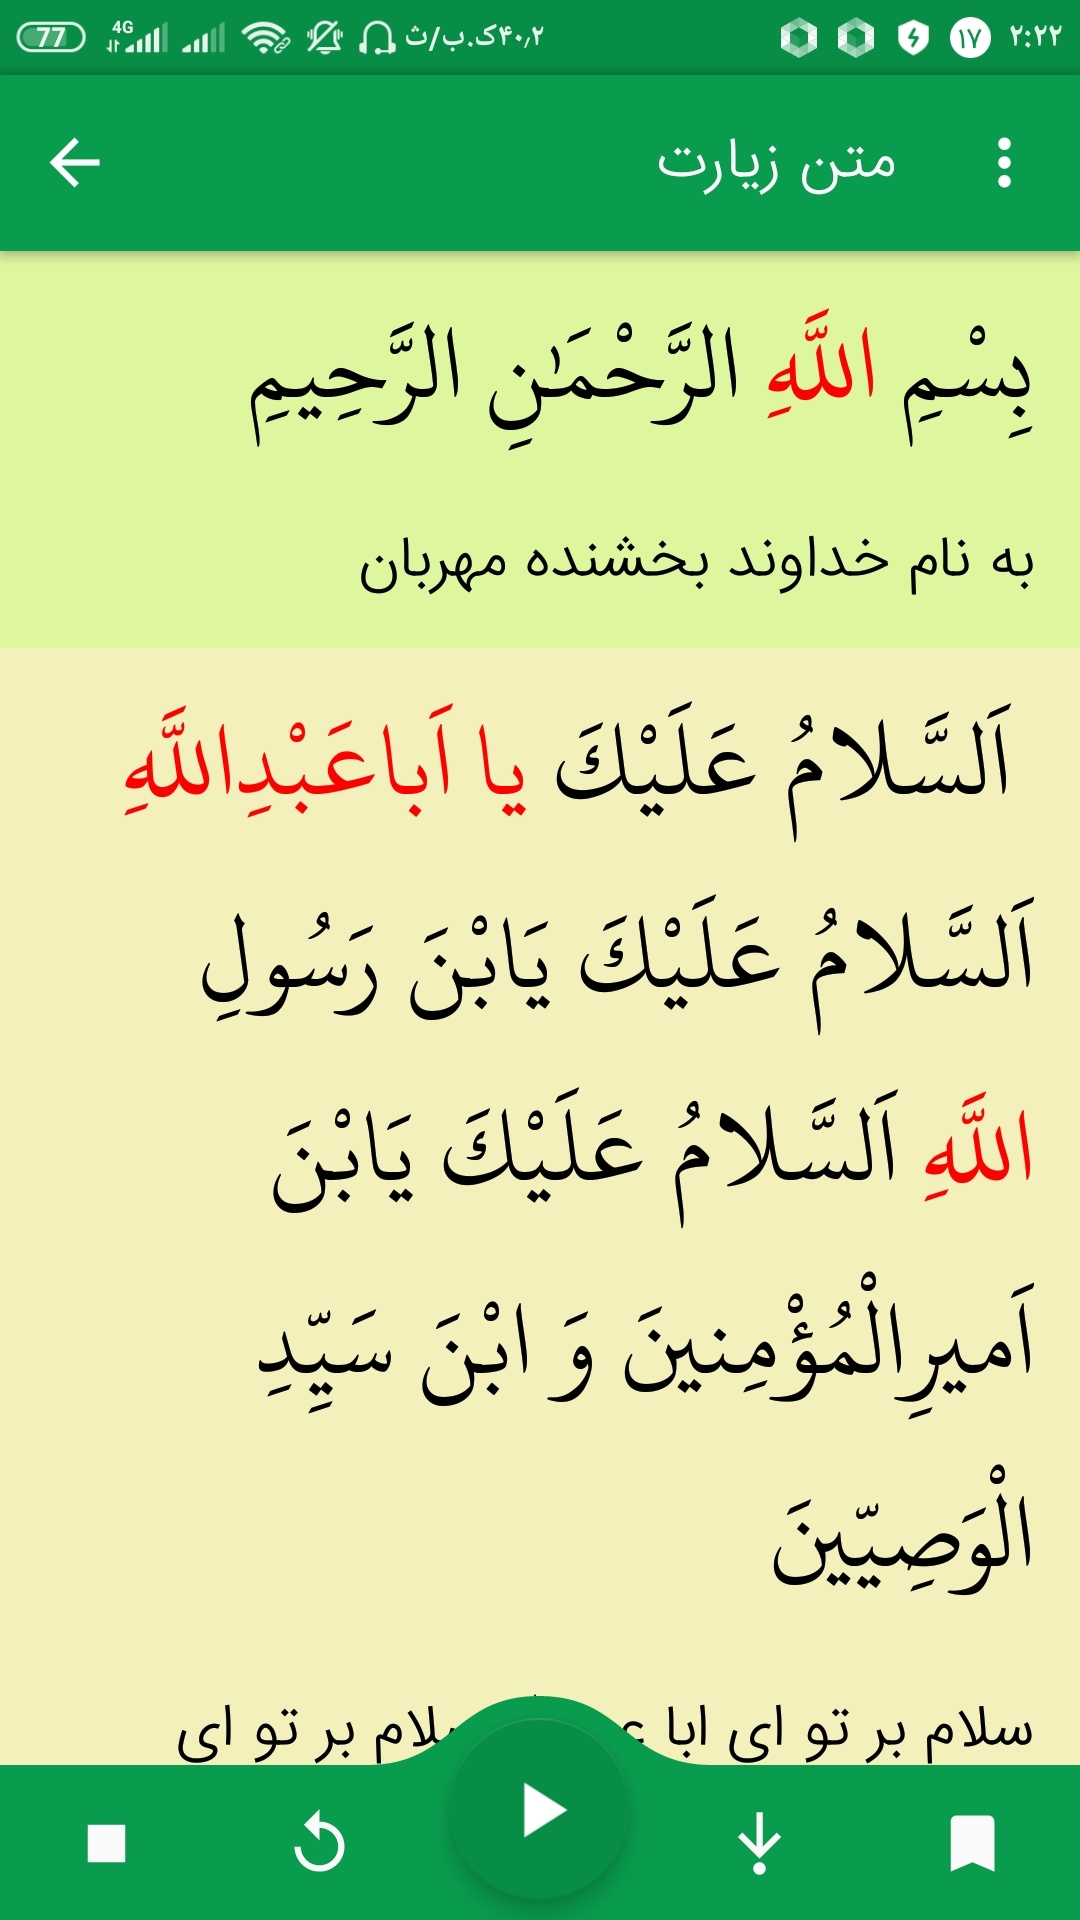 77 4G ۴۰٫۲ک.ب/ث ۱۷ ۲:۲۲
متن زیارت
بِسْمِ اللَّهِ الرَّحْمَٰنِ الرَّحِيمِ
به نام خداوند بخشنده مهربان
اَلسَّلامُ عَلَيْكَ يا اَباعَبْدِاللَّهِ
اَلسَّلامُ عَلَيْكَ يَابْنَ رَسُولِ
اللَّهِ اَلسَّلامُ عَلَيْكَ يَابْنَ
اَميرِالْمُؤْمِنينَ وَ ابْنَ سَيِّدِ
الْوَصِيّينَ
سلام بر تو ای ابا سلام بر تو ای